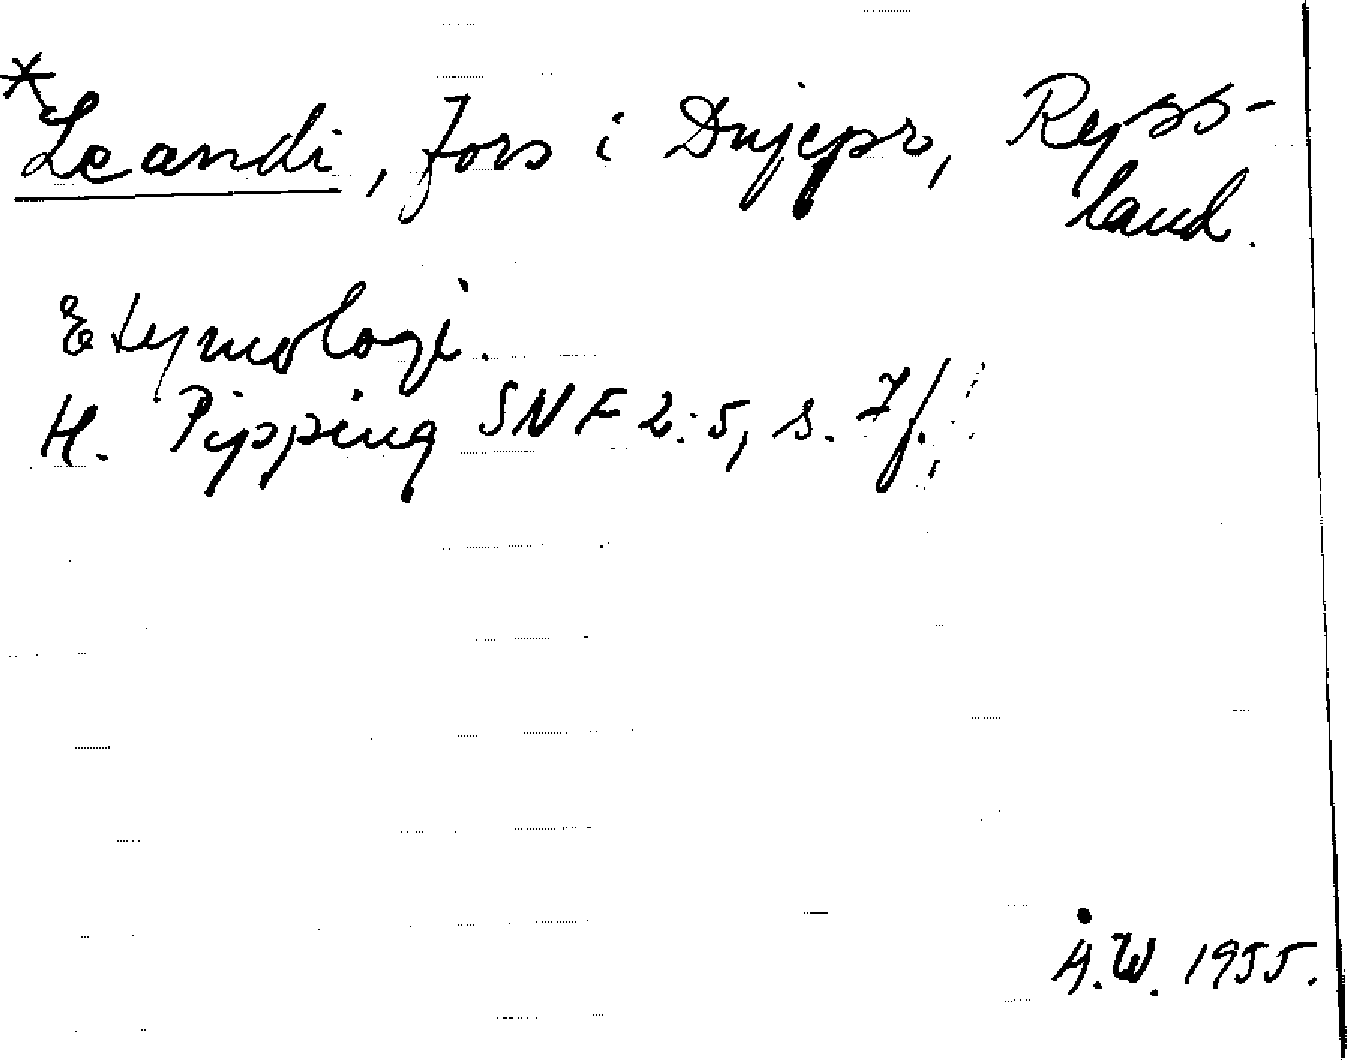 *Leandi, fors i Dnjepr, Ryss-
land.
Etymologi.
H. Pipping SNF 2:5, s. 7f.
Å.W. 1955.